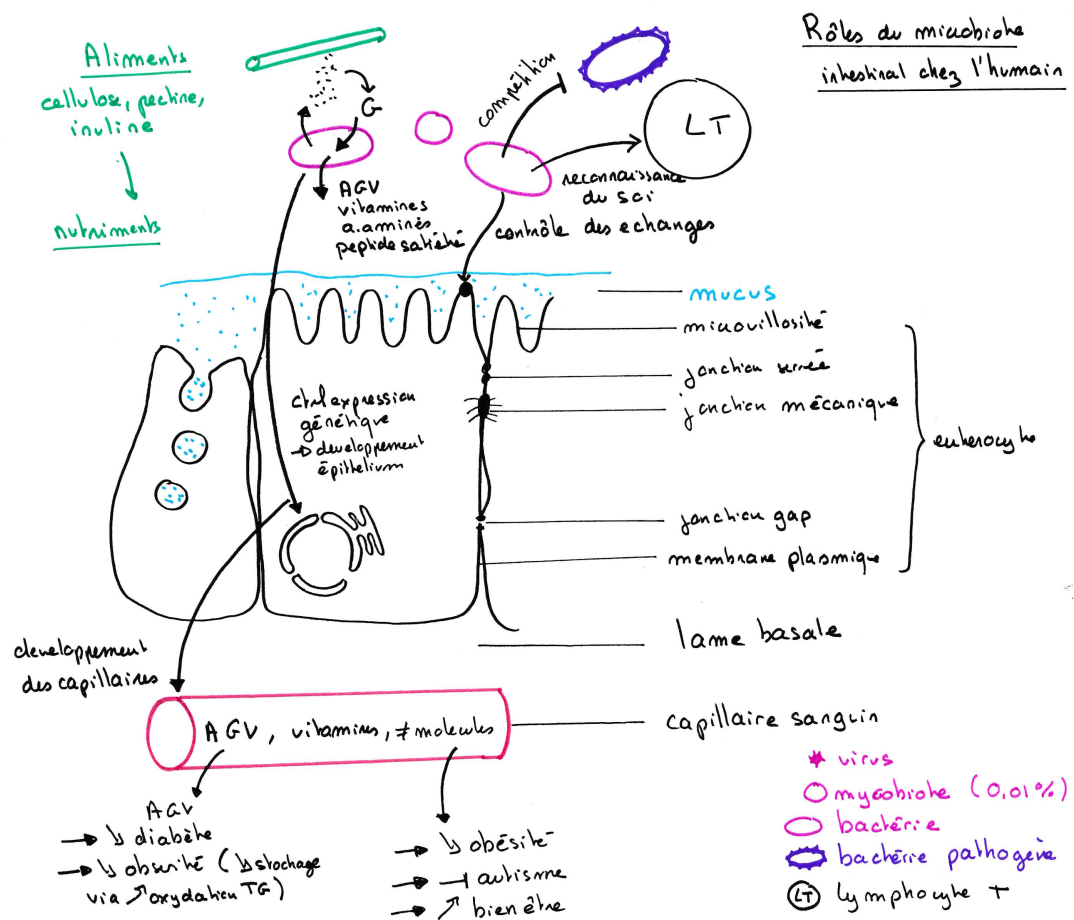 Rôles du microbiote
intestinal chez l'humain
Aliments
cellulose, pectine,
inuline
nutriments
G
AGV
vitamines
a.aminés
peptide satiété
compétition
LT
reconnaissance
du soi
contrôle des echanges
mucus
microvillosité
jonction serrée
jonction mécanique
enterocyte
jonction gap
membrane plasmique
lame basale
capillaire sanguin
ctrl expression
génétique
→ developpement
épithelium
developpement
des capillaires
AGV, vitamines, ≠ molecules
AGV
→ ↘ diabète
→ ↘ obesité (↘ stockage
via ↗ oxydation TG)
→ ↘ obésité
→ ⊣ autisme
→ ↗ bien être
virus
mycobiote (0,01%)
bactérie
bactérie pathogène
LT lymphocyte T